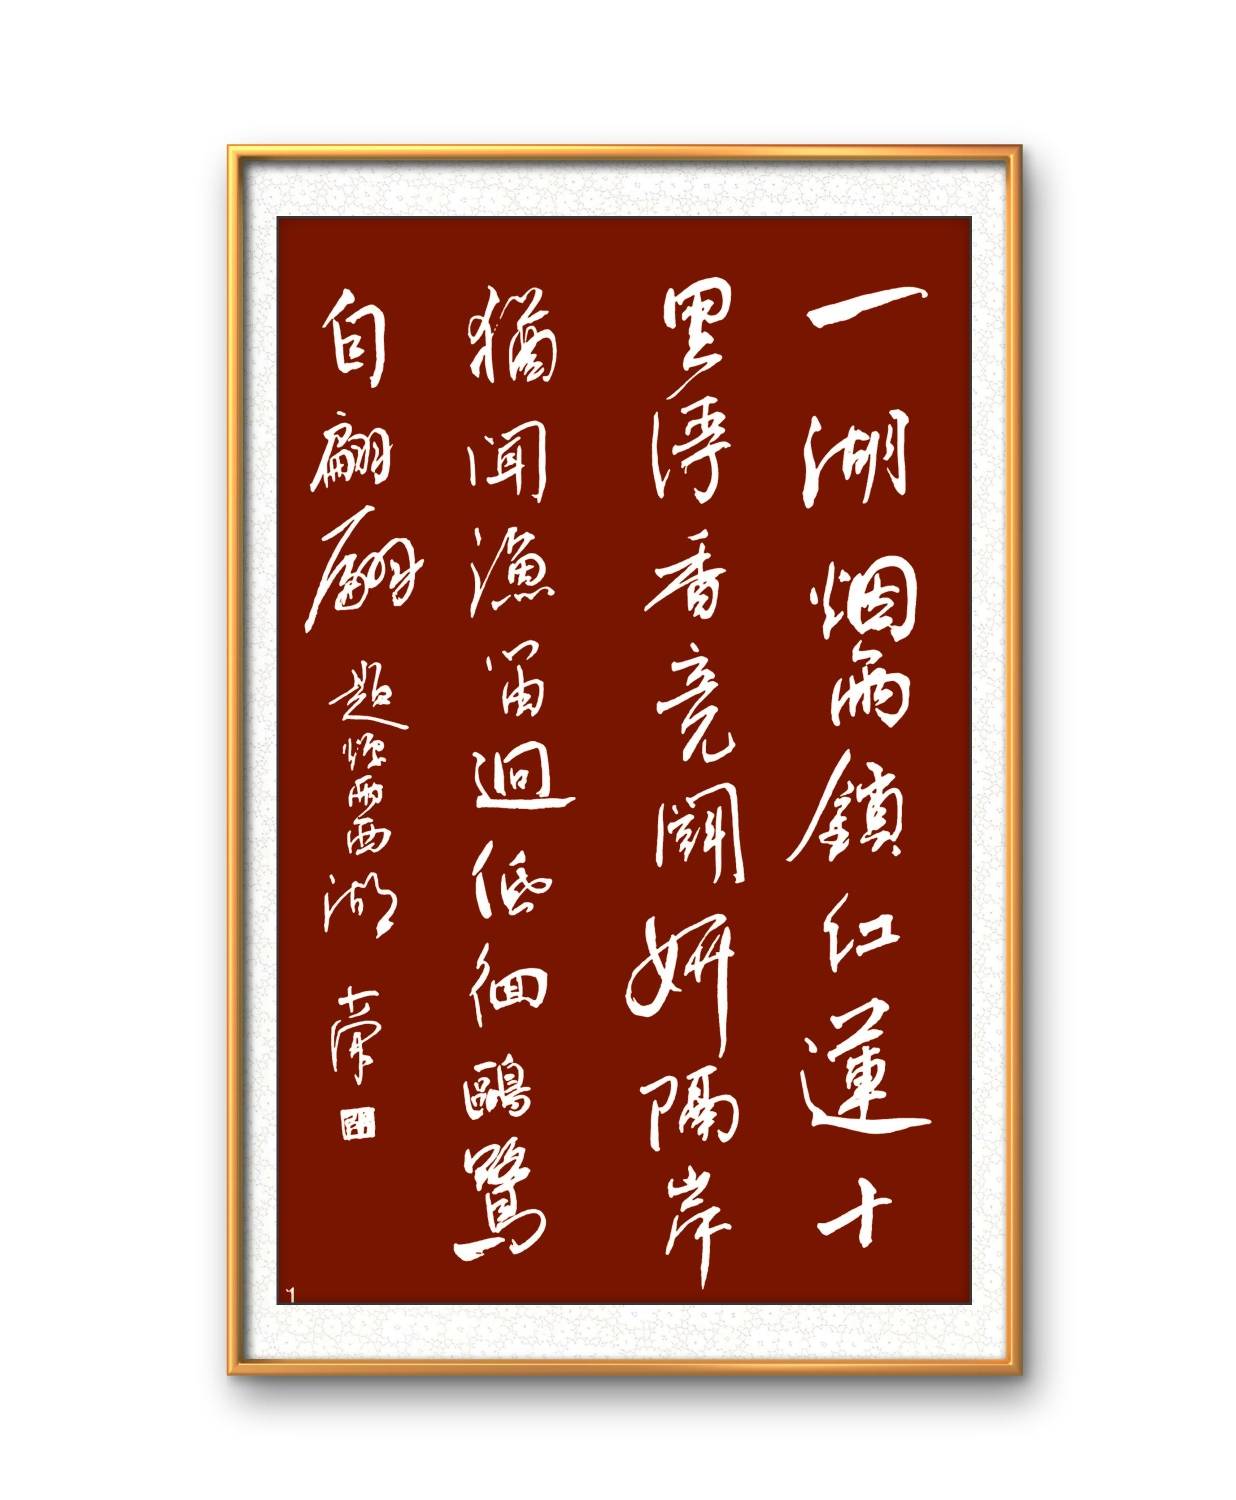 一湖烟雨鎖红蓮十
里渟香竞鬪妍隔岸
猶闻漁笛迴低徊鷗鷺
自翩翩
題煙雨西湖